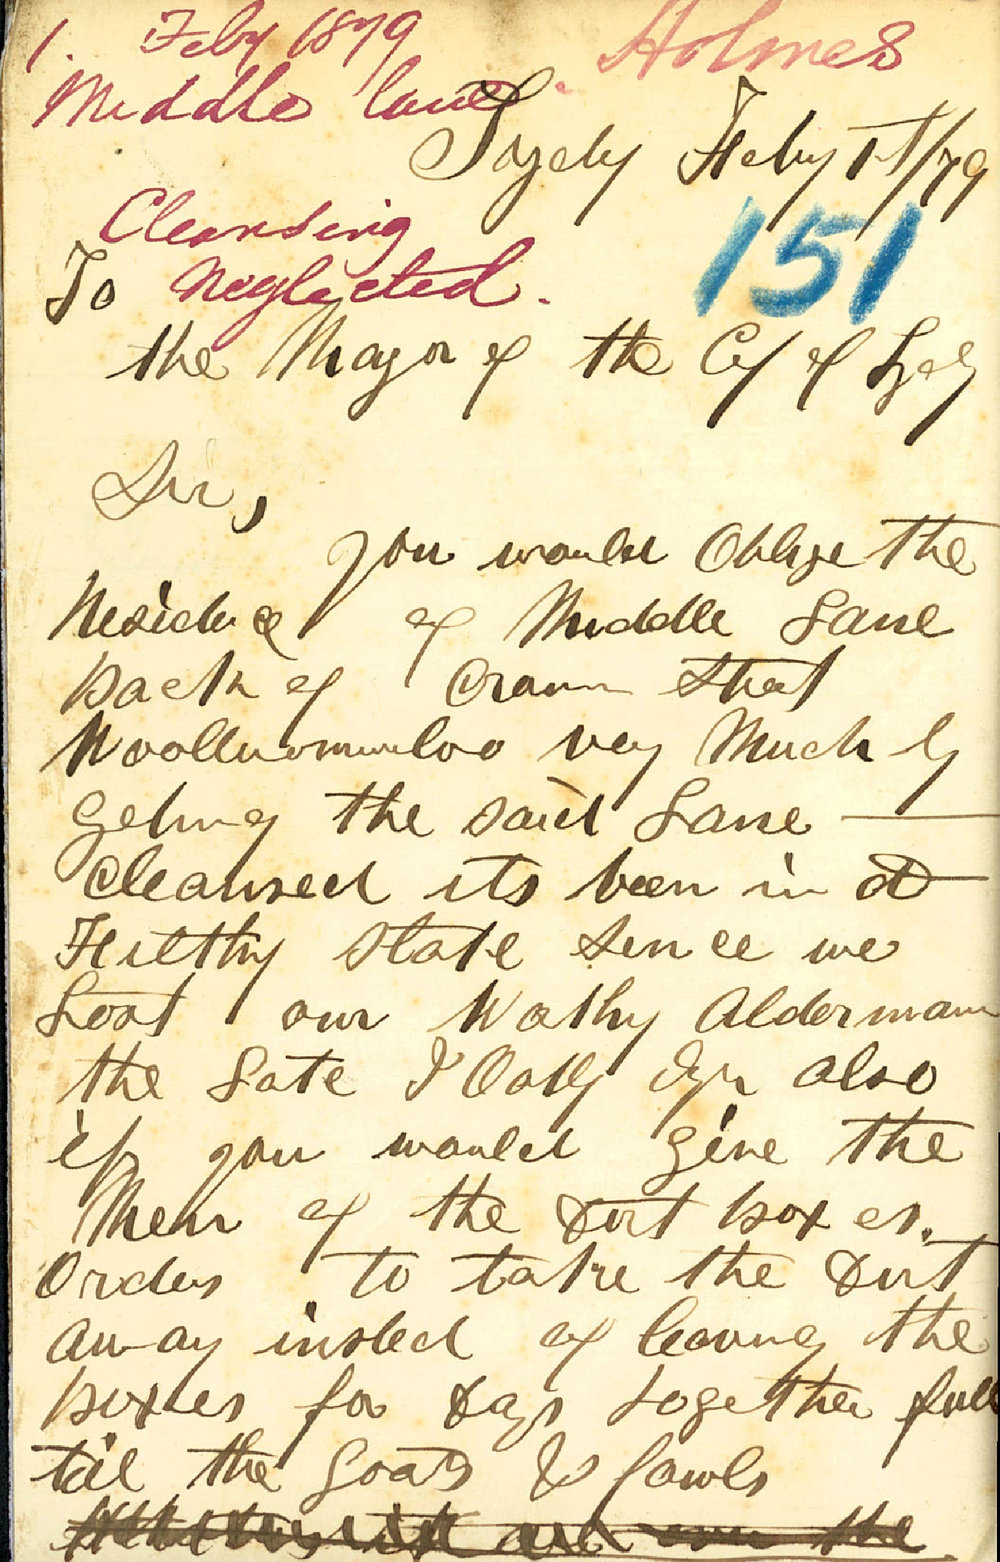 1. Feby 1879 Holmes
Middle lane.
Sydy Feby 1st/79
Cleansing
151
To Neglected.
the Mayor of the Cy of Sydy
Sir,
you would Oblige the
Residence of Middle Lane
Back of Crown Street
Woolloomooloo very Much by
geting the said Lane —
Cleansed its been in a
Filthy state since we
Lost our Wothy Alderman
the Late J Oatly Esqr also
if you would give the
Men of the Dirt Boxes.
Orders to take the Dirt
away insted of leaving the
Boxes for Days together full
til the Goats & fowls